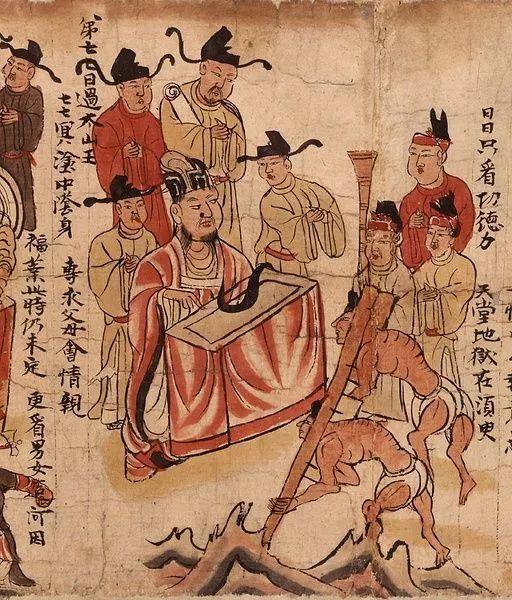 日日只看功德力
天堂地獄在須臾
第七々日過太山王
七七冥塗中蔭身
專求父母會情親
福業此時仍未定
更看男女造何因